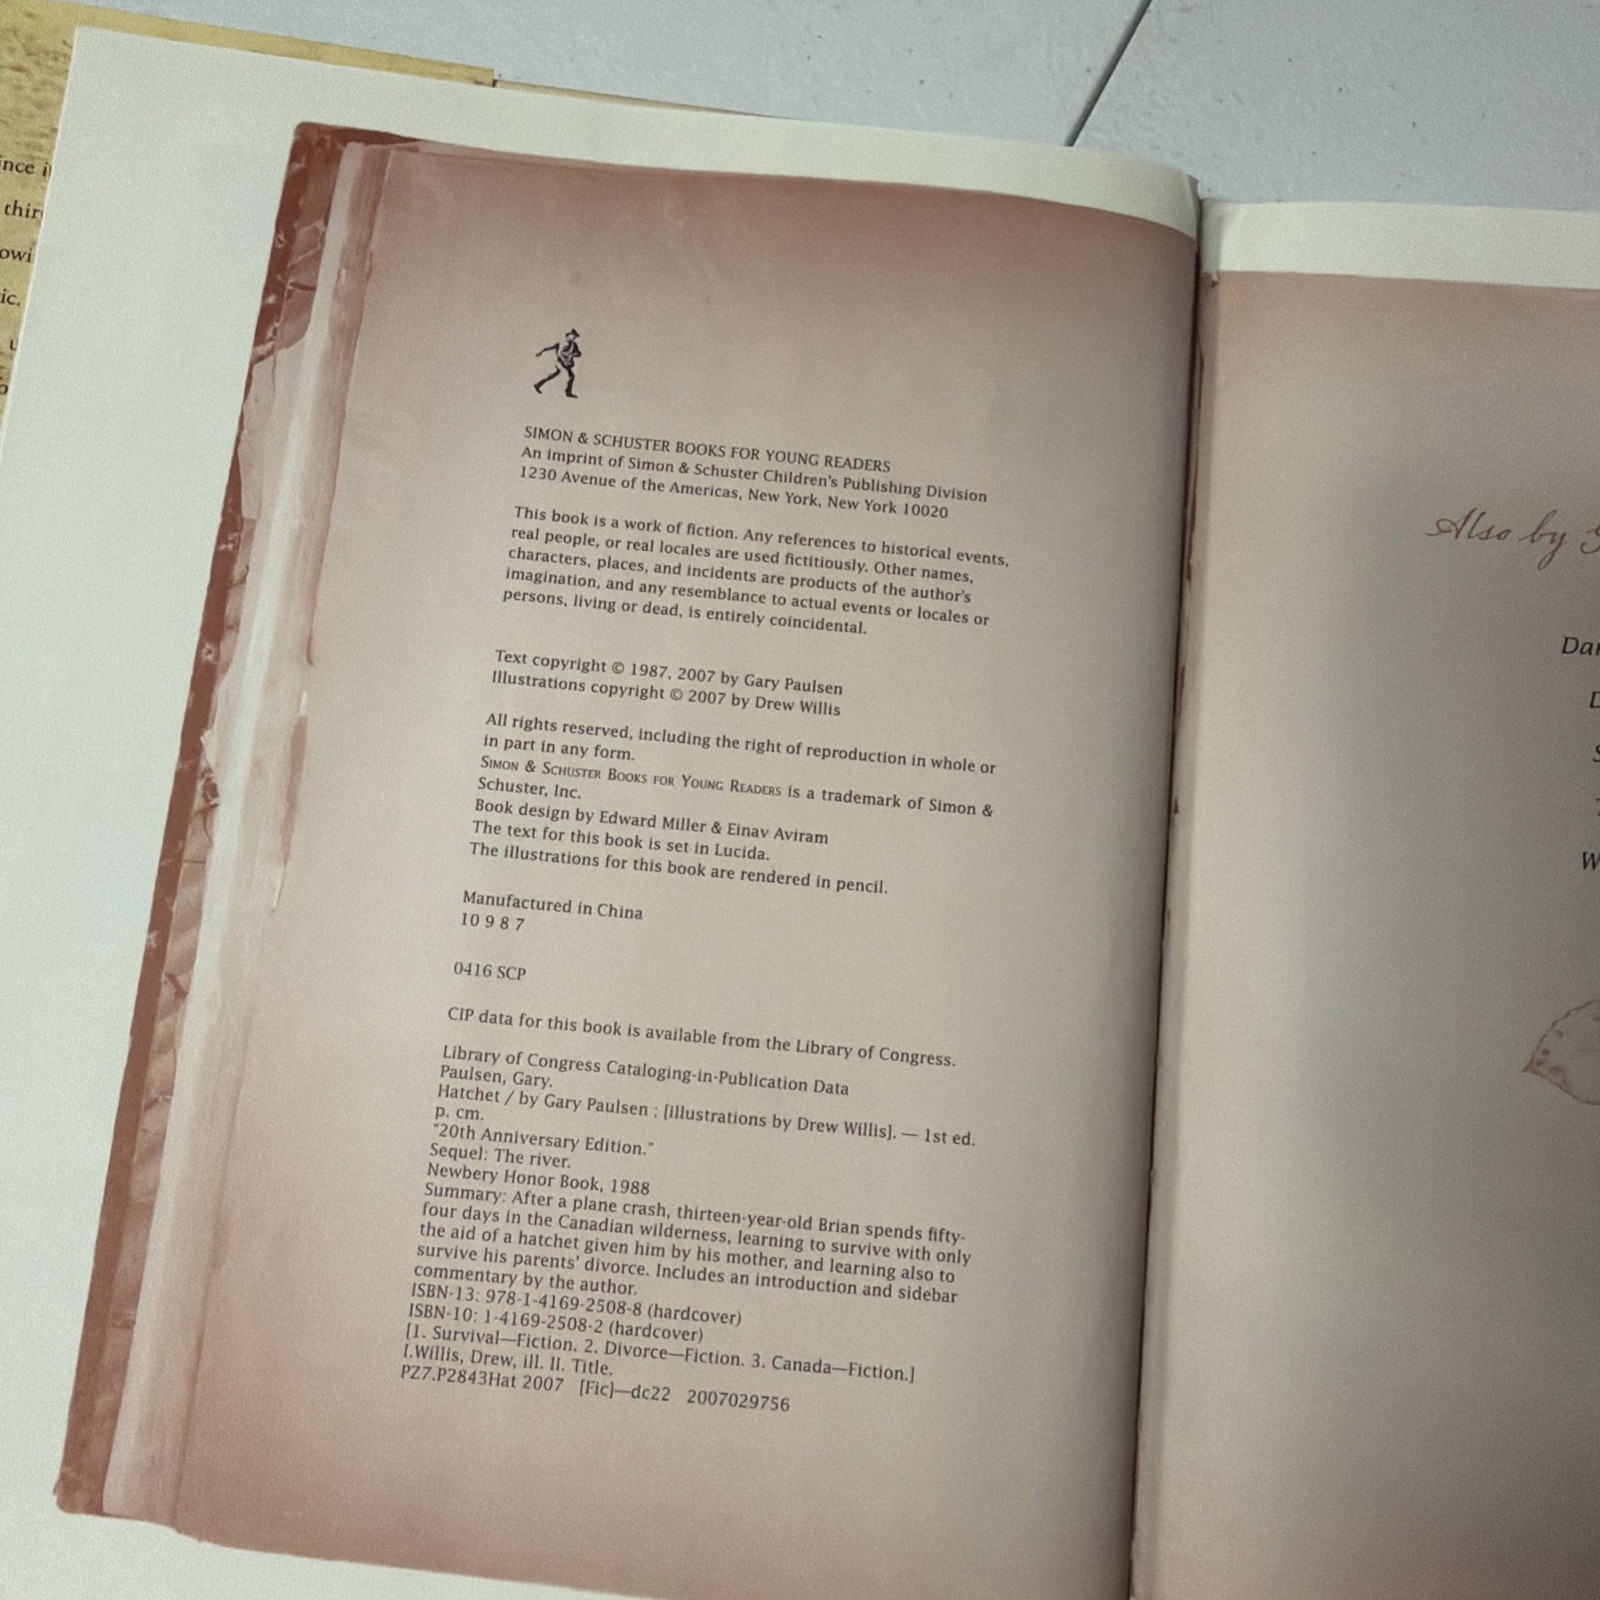 ince i
thir
owi
ic.
SIMON & SCHUSTER BOOKS FOR YOUNG READERS
An imprint of Simon & Schuster Children's Publishing Division
1230 Avenue of the Americas, New York, New York 10020
This book is a work of fiction. Any references to historical events,
real people, or real locales are used fictitiously. Other names,
characters, places, and incidents are products of the author's
imagination, and any resemblance to actual events or locales or
persons, living or dead, is entirely coincidental.
Text copyright © 1987, 2007 by Gary Paulsen
Illustrations copyright © 2007 by Drew Willis
All rights reserved, including the right of reproduction in whole or
in part in any form.
SIMON & SCHUSTER BOOKS FOR YOUNG READERS is a trademark of Simon &
Schuster, Inc.
Book design by Edward Miller & Einav Aviram
The text for this book is set in Lucida.
The illustrations for this book are rendered in pencil.
Manufactured in China
10 9 8 7
0416 SCP
CIP data for this book is available from the Library of Congress.
Library of Congress Cataloging-in-Publication Data
Paulsen, Gary.
Hatchet / by Gary Paulsen ; [illustrations by Drew Willis]. — 1st ed.
p. cm.
"20th Anniversary Edition."
Sequel: The river.
Newbery Honor Book, 1988
Summary: After a plane crash, thirteen-year-old Brian spends fifty-
four days in the Canadian wilderness, learning to survive with only
the aid of a hatchet given him by his mother, and learning also to
survive his parents' divorce. Includes an introduction and sidebar
commentary by the author.
ISBN-13: 978-1-4169-2508-8 (hardcover)
ISBN-10: 1-4169-2508-2 (hardcover)
[1. Survival—Fiction. 2. Divorce—Fiction. 3. Canada—Fiction.]
I.Willis, Drew, ill. II. Title.
PZ7.P2843Hat 2007 [Fic]—dc22 2007029756
Also by G
Dar
W